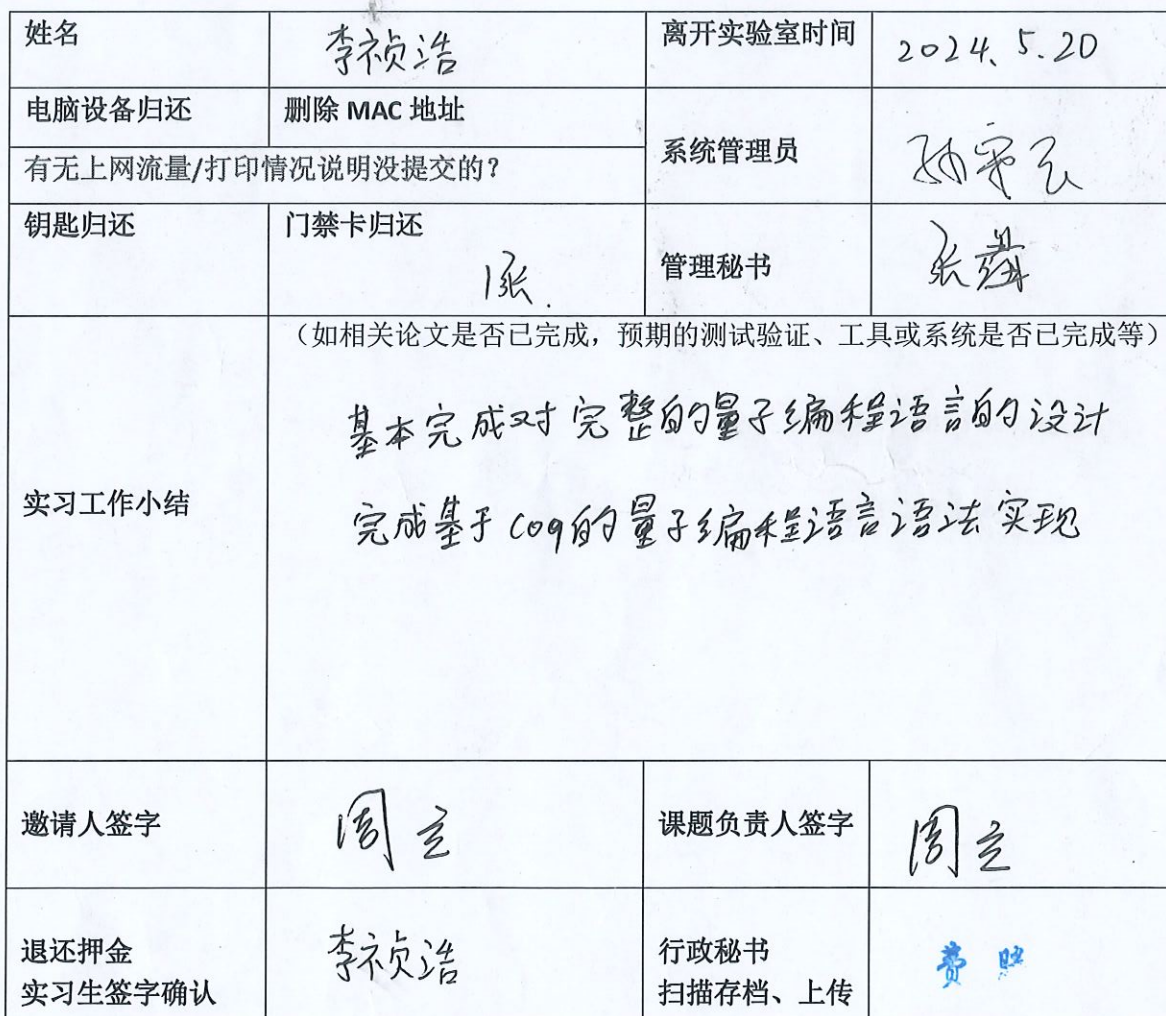 姓名 李祯浩 离开实验室时间 2024.5.20
电脑设备归还 删除 MAC 地址
系统管理员
有无上网流量/打印情况说明没提交的?
钥匙归还 门禁卡归还
1张. 管理秘书
（如相关论文是否已完成，预期的测试验证、工具或系统是否已完成等）
基本完成对完整的量子编程语言的设计
实习工作小结
完成基于coq的量子编程语言语法实现
邀请人签字 周立 课题负责人签字 周立
退还押金 李祯浩 行政秘书
实习生签字确认 扫描存档、上传